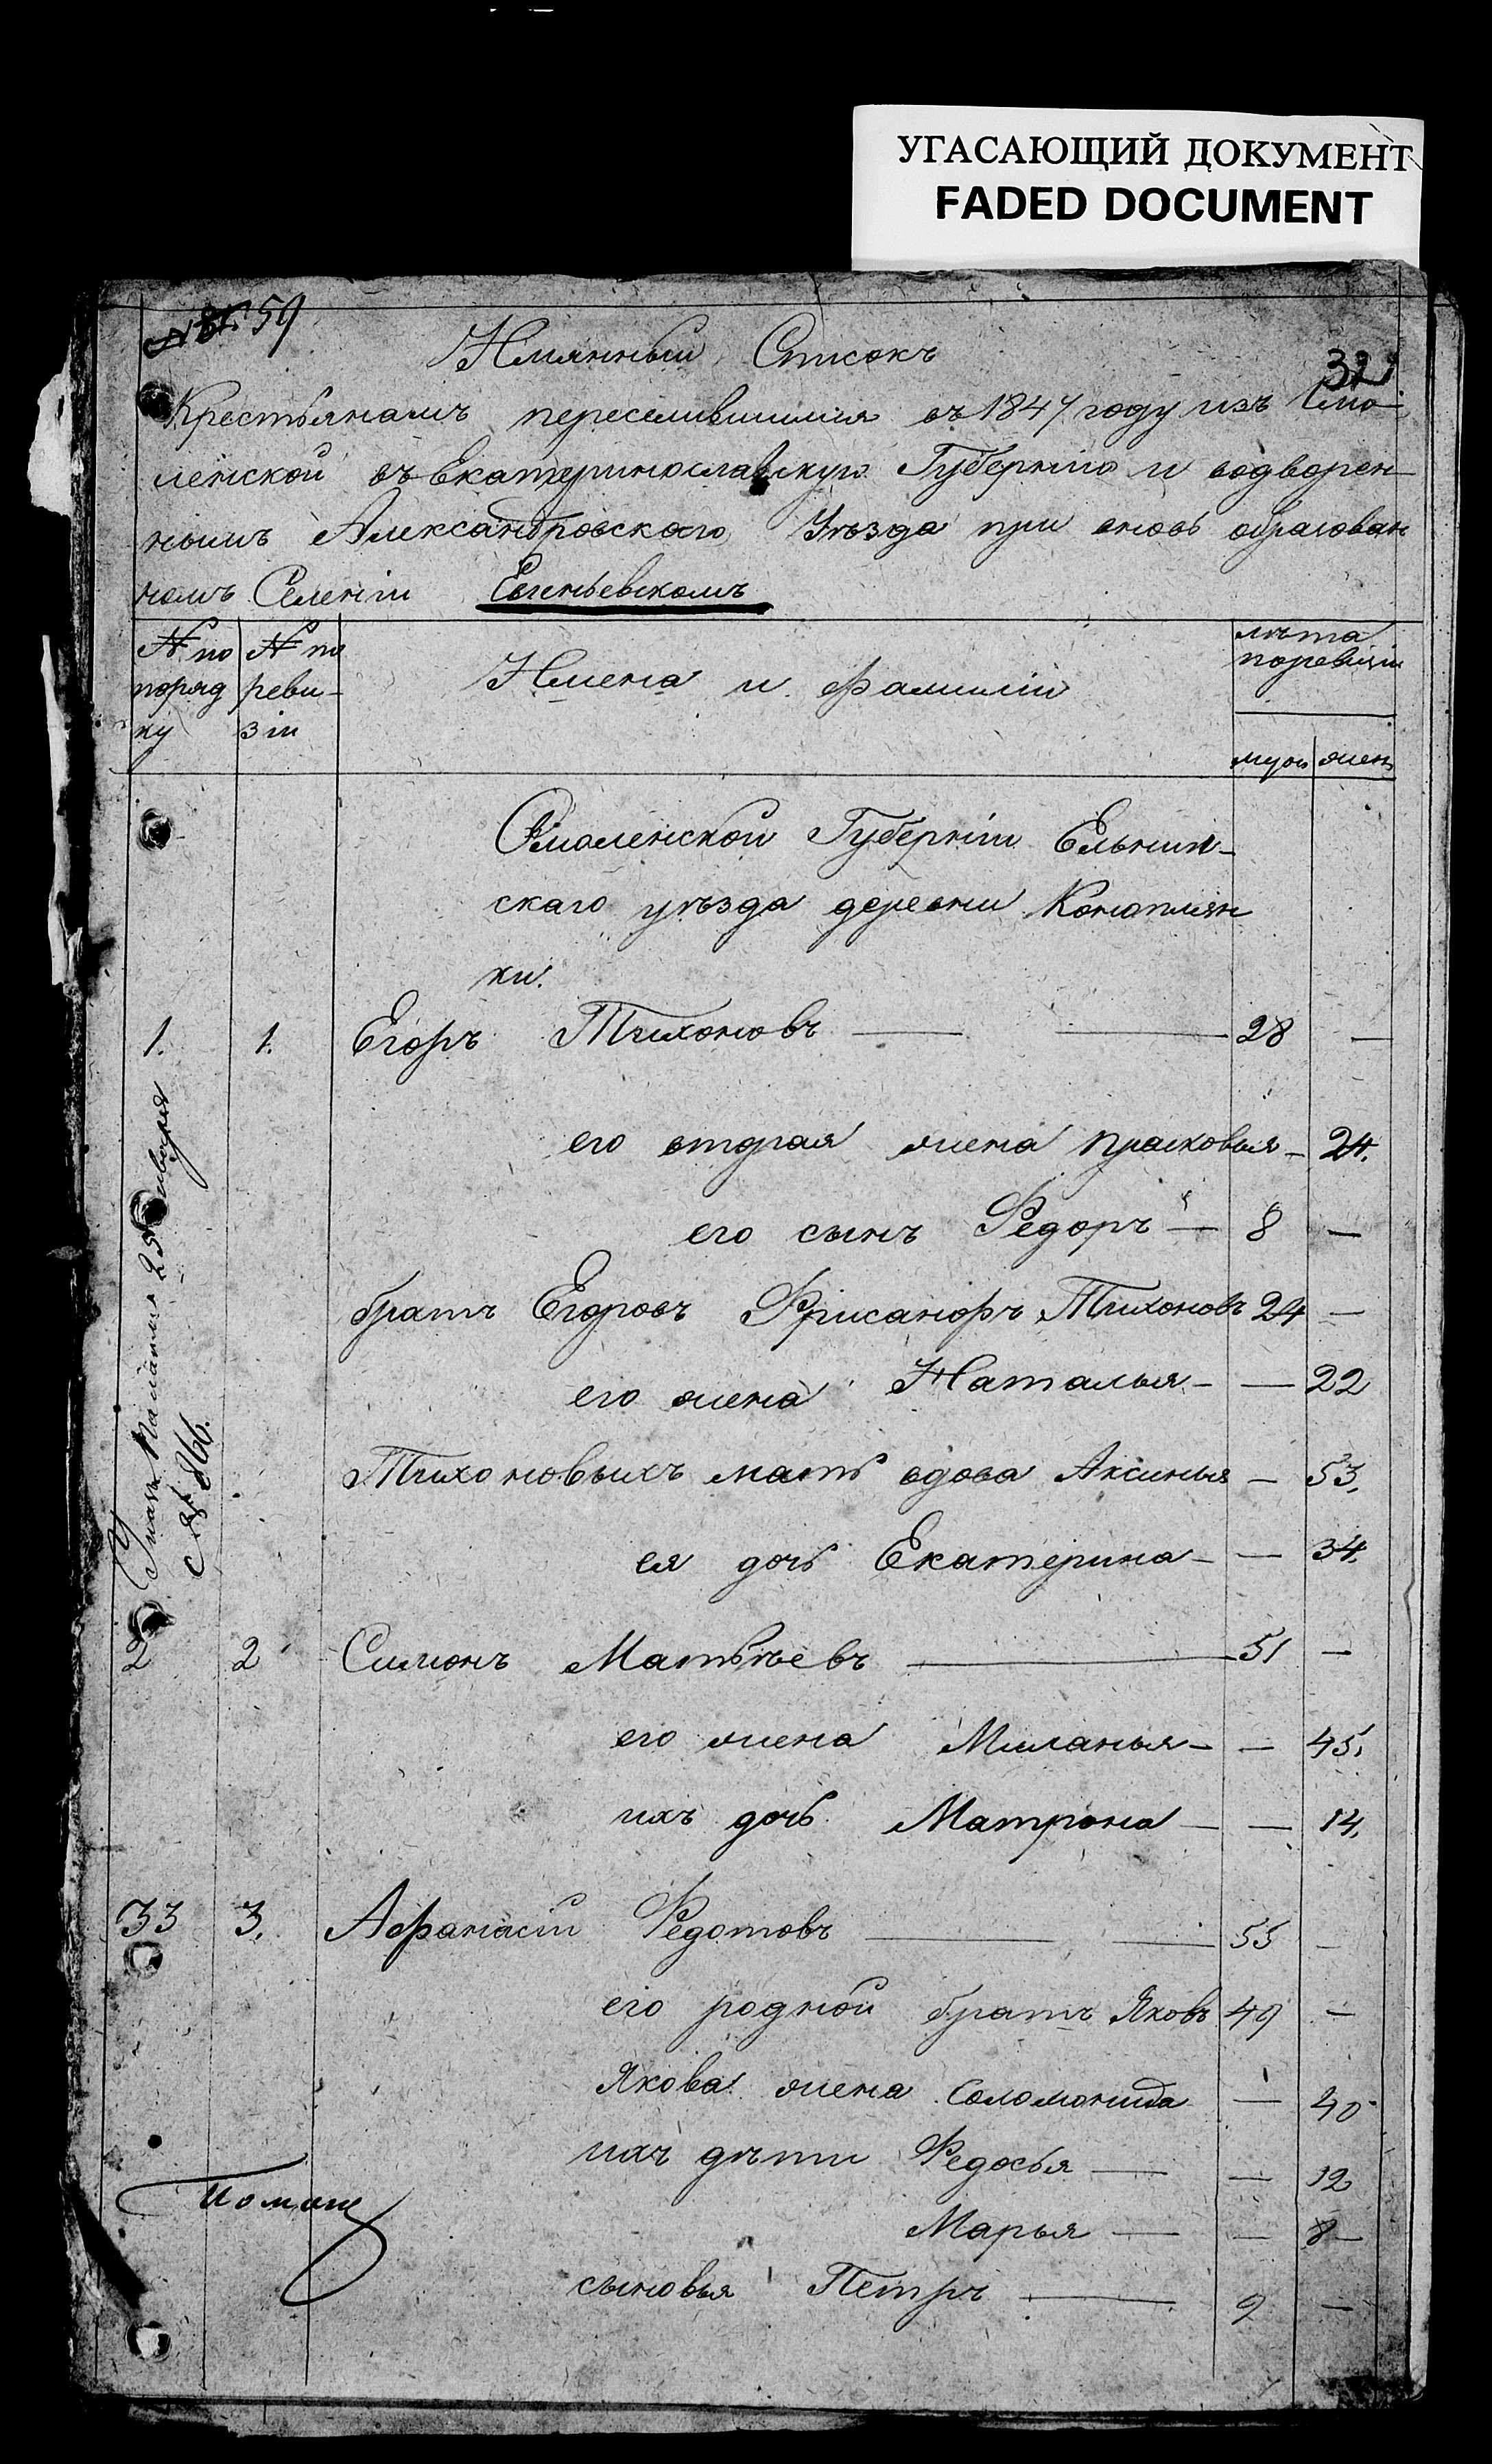 УГАСАЮЩИЙ ДОКУМЕНТ
FADED DOCUMENT
59
Имянный Списокъ
32
Крестьянамъ переселившимся въ 1847 году изъ Смо-
ленской въ Екатеринославскую Губернію и водворен-
нымъ Александровскаго Уѣзда при вновь образован
номъ Селеніи Евгеньевскомъ
№ по поряд ку
№ по реви- зіи
Имена и фамиліи
лѣта по ревизіи
муж. жен.
Смоленской Губерніи Ельнин-
скаго уѣзда деревни Коноплян
ки.
1. 1. Егоръ Тихоновъ — — 28 —
его вторая жена Прасковья — 24.
его сынъ Федоръ — 8 —
братъ Егоровъ Фрисанфръ Тихоновъ 24 —
его жена Наталья — — 22
Тихоновыхъ мать вдова Аксинья — 53.
ея дочь Екатерина — — 34.
2 2 Симонъ Матвѣевъ — 51 —
его жена Миланья — — 45.
ихъ дочь Матрона — — 14.
33 3. Афанасій Федотовъ — — 55 —
его родной братъ Яковъ 49 —
Якова жена Соломонида — 40
ихъ дѣти Федосья — — 12
Марья — — 8
сыновья Петръ — 9 —
25 января
с № 866.